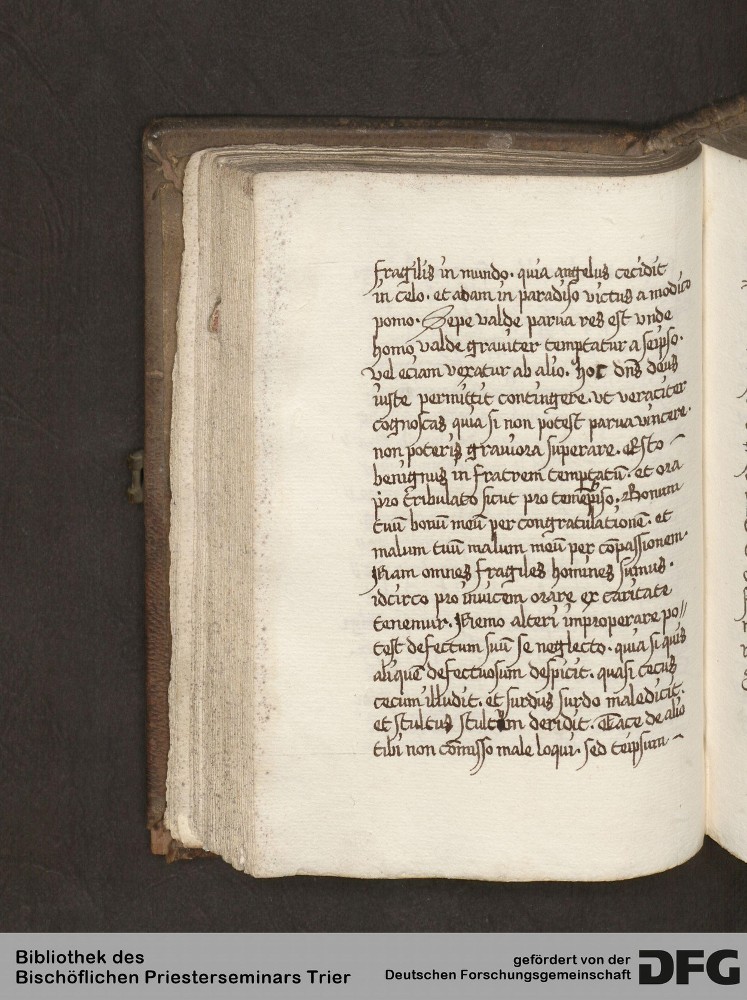 fragilis in mundo. quia angelus cecidit
in celo. et adam in paradiso victus a modico
pomo. Sepe valde parua res est vnde
homo valde grauiter temptatur a seipso.
vel eciam vexatur ab alio. hoc dn̄s deus
iuste permittit contingere. vt veraciter
cognoscas quia si non potest parua vincere.
non poteris grauiora superare. Esto
benignus in fratrem temptatū. et ora
pro tribulato sicut pro temetipso. Bonum
tuū bonū meū per congratulationē. et
malum tuū malum meū per cōpassionem.
Nam omnes fragiles homines sumus.
idcirco pro inuicem orare ex caritate
tenemur. Nemo alteri improperare po//
test defectum suū se neglecto. quia si quis
aliquē defectuosum despicit. quasi cecus
cecum illudit. et surdus surdo maledicit.
et stultus stultum deridit. Tace de alio
tibi non cōmisso male loqui. sed teipsum
Bibliothek des
Bischöflichen Priesterseminars Trier
gefördert von der
Deutschen Forschungsgemeinschaft
DFG